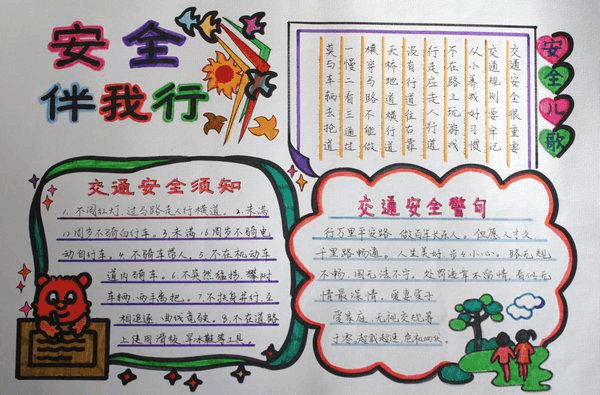 安全
伴我行
安全儿歌
交通安全很重要
交通规则要牢记
从小养成好习惯
不在路上玩游戏
行走应走人行道
没有行道往右靠
天桥地道横行道
横穿马路不能做
一慢二看三通过
莫与车辆去抢道
交通安全须知
1.不闯红灯,过马路走人行横道。2.未满
12周岁不骑自行车。3.未满16周岁不骑电
动自行车。4.不骑车带人。5.不在机动车
道内骑车。6.不突然猛拐,攀附
车辆,两手离把。7.不扶身并行,互
相追逐、曲线竞驶。8.不在道路
上使用滑板、旱冰鞋等工具。
交通安全警句
行万里平安路 做百年长在人。但愿人才久
千里路畅通。人生美好,步步小心。路无规
不畅,国无法不宁。处罚违章不留情,看似无
情最深情。爱妻爱子
爱家庭,无视交规等
于零。超载超速,危机四伏。